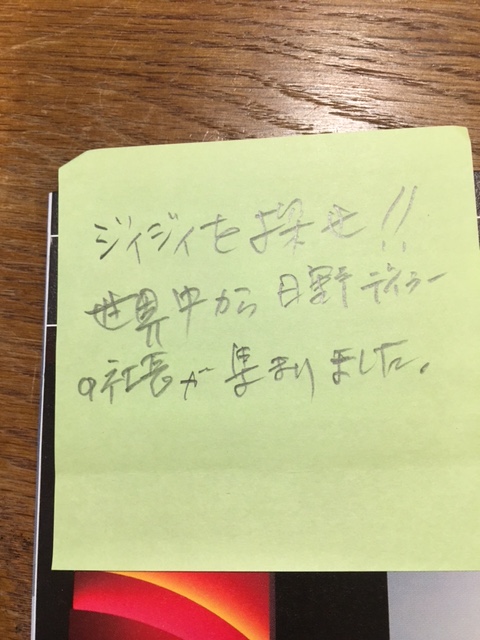 ジイジイを探せ!!
世界中から日野ディラー
の社長が集まりました。